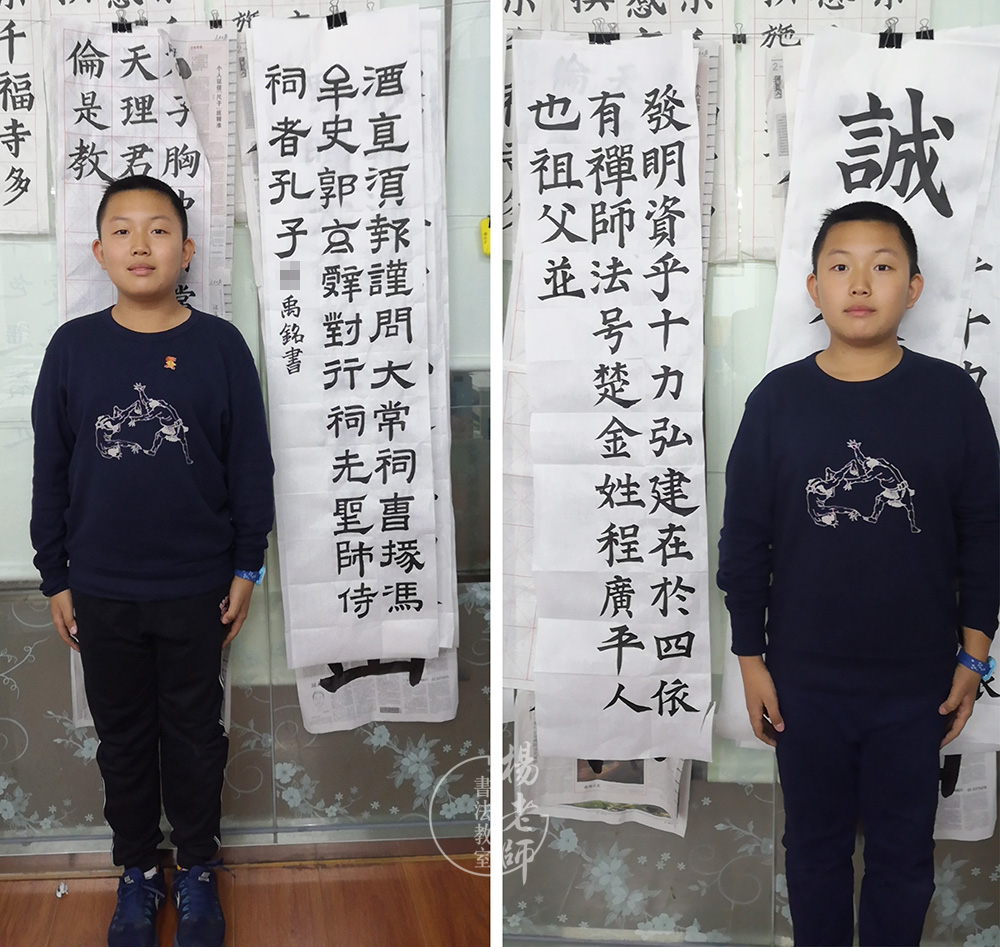 千福寺多
子胸
天理君
倫是教
酒直須報謹問大常祠曹掾馮
牟史郭玄辭對行祠先聖師侍
祠者孔子
禹銘書
施
誠
發明資乎十力弘建在於四依
有禪師法号楚金姓程廣平人
也祖父並
楊老師
書法教室